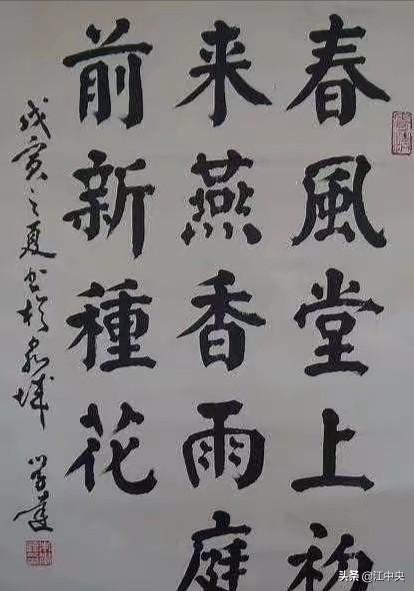 春風堂上初
来燕香雨庭
前新種花
戊寅之夏书於泉城
头条 @江中央